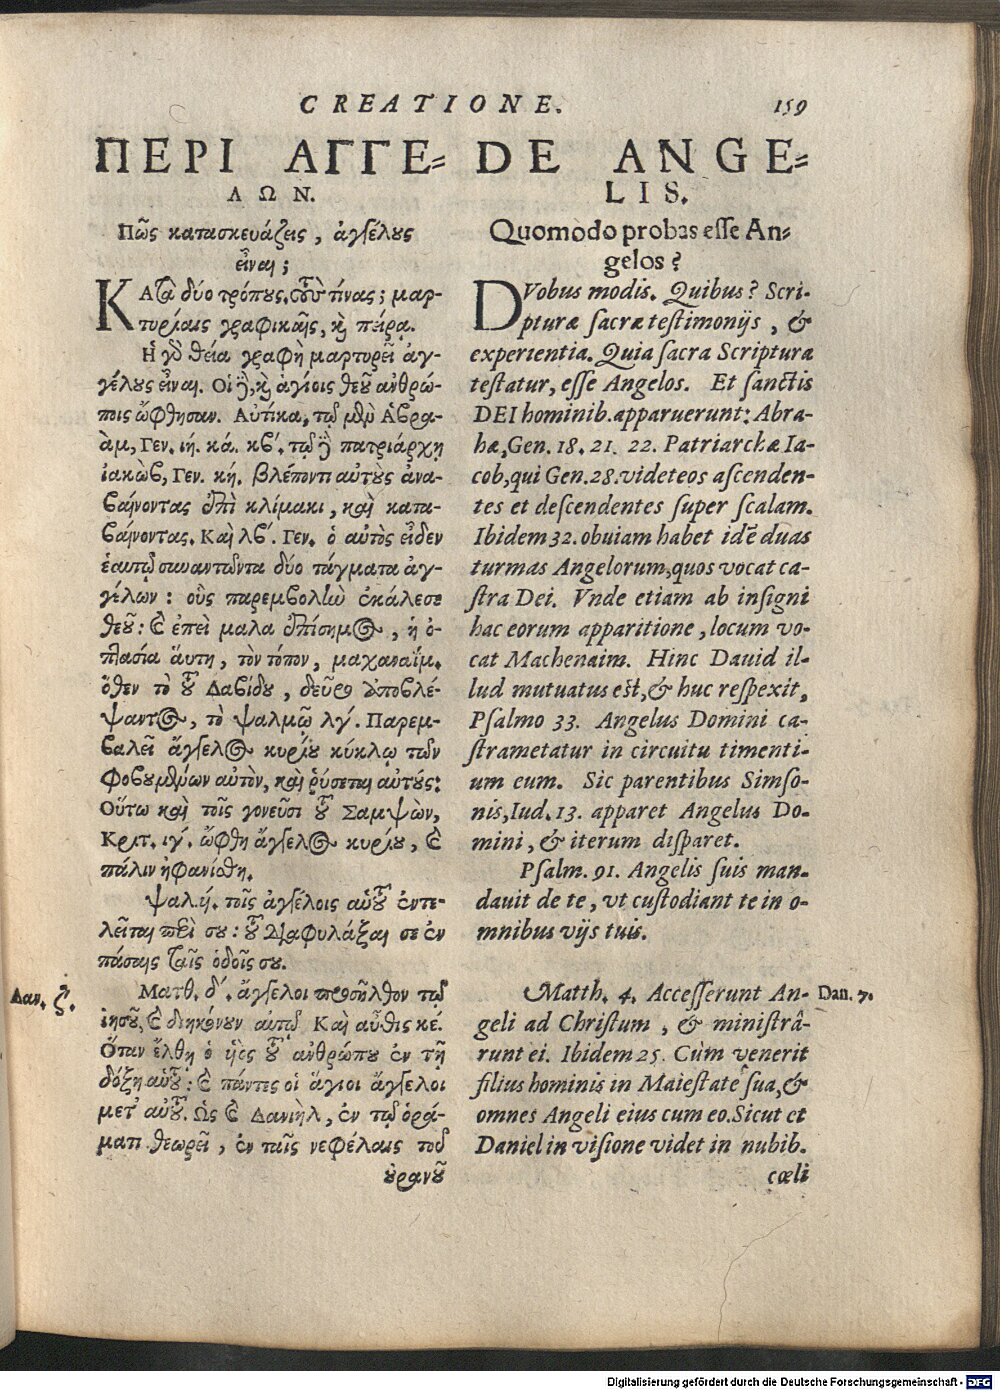 CREATIONE. 159
ΠΕΡΙ ΑΓΓΕ=
ΛΩΝ.
Πῶς κατασκευάζεις, ἀγγέλους
εἶναι;
ΚΑτὰ δύο τρόπους. οὓς τίνας; μαρ-
τυρίαις γραφικαῖς, καὶ πείρᾳ.
Ἡ γὸ θεία γραφὴ μαρτυρεῖ ἀγ-
γέλους εἶναι. Οἱ δὲ καὶ ἁγίοις θεοῦ ἀνθρώ-
ποις ὤφθησαν. Αὐτίκα, τῷ μὲν Ἁβρα-
ὰμ, Γεν. ιή. κά. κβ'. τῷ δὲ πατριάρχῃ
ἰακὼβ, Γεν. κή. βλέποντι αὐτοὺς ἀνα-
βαίνοντας ἐπὶ κλίμακι, καὶ κατα-
βαίνοντας. Καὶ λβ'. Γεν. ὁ αὐτὸς εἶδεν
ἑαυτῷ συναντῶντα δύο τάγματα ἀγ-
γέλων: οὓς παρεμβολὴν ἐκάλεσε
θεοῦ: καὶ ἐπεὶ μαλα ἐπίσημος, ἡ ὀ-
πλασία αὕτη, τὸν τόπον, μαχαναΐμ.
ὅθεν τὸ τοῦ Δαβίδου, δεῦρο ὑποβλέ-
ψαντος, τὸ ψαλμῷ λγ'. Παρεμ-
βαλεῖ ἄγγελος κυρίου κύκλῳ τῶν
φοβουμένων αὐτὸν, καὶ ῥύσεται αὐτούς:
Οὕτω καὶ τοῖς γονεῦσι τοῦ Σαμψὼν,
Κριτ. ιγ'. ὤφθη ἄγγελος κυρίου, καὶ
πάλιν ἠφανίσθη.
ψαλ. ή. τοῖς ἀγγέλοις αὑτοῦ ἐντε-
λεῖται περὶ σου: τοῦ διαφυλάξαι σε ἐν
πάσαις ταῖς ὁδοῖς σου.
Δαν. ζ'.
Ματθ. δ'. ἄγγελοι προσῆλθον τῷ
ἰησοῦ, καὶ διηκόνουν αὐτῷ. Καὶ αὖθις κέ.
Ὅταν ἔλθῃ ὁ υἱὸς τοῦ ἀνθρώπου ἐν τῇ
δόξῃ αὑτοῦ: καὶ πάντες οἱ ἅγιοι ἄγγελοι
μετ' αὐτοῦ. Ὡς καὶ Δανιὴλ, ἐν τῷ ὁρά-
ματι θεωρεῖ, ἐν ταῖς νεφέλαις τοῦ
οὐρανοῦ
DE ANGE=
LIS.
Quomodo probas esse An=
gelos?
DVobus modis. Quibus? Scri-
pturæ sacræ testimonijs, &
experientia. Quia sacra Scriptura
testatur, esse Angelos. Et sanctis
DEI hominib. apparuerunt: Abra-
hæ, Gen. 18. 21. 22. Patriarchæ Ia-
cob, qui Gen. 28. videt eos ascenden-
tes et descendentes super scalam.
Ibidem 32. obuiam habet idẽ duas
turmas Angelorum, quos vocat ca-
stra Dei. Vnde etiam ab insigni
hac eorum apparitione, locum vo-
cat Machenaim. Hinc Dauid il-
lud mutuatus est, & huc respexit,
Psalmo 33. Angelus Domini ca-
strametatur in circuitu timenti-
um eum. Sic parentibus Simso-
nis, Iud. 13. apparet Angelus Do-
mini, & iterum disparet.
Psalm. 91. Angelis suis man-
dauit de te, vt custodiant te in o-
mnibus vijs tuis.
Matth. 4. Accesserunt An-
geli ad Christum, & ministrâ-
runt ei. Ibidem 25. Cùm venerit
filius hominis in Maiestate sua, &
omnes Angeli eius cum eo. Sicut et
Daniel in visione videt in nubib.
cœli
Dan. 7.
Digitalisierung gefördert durch die Deutsche Forschungsgemeinschaft - DFG